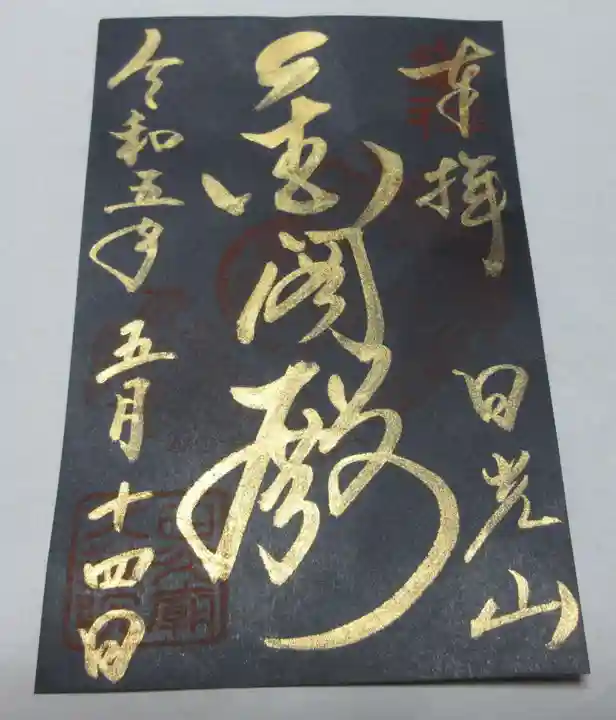 奉拝 日光山
金閣殿
令和五年 五月十四日